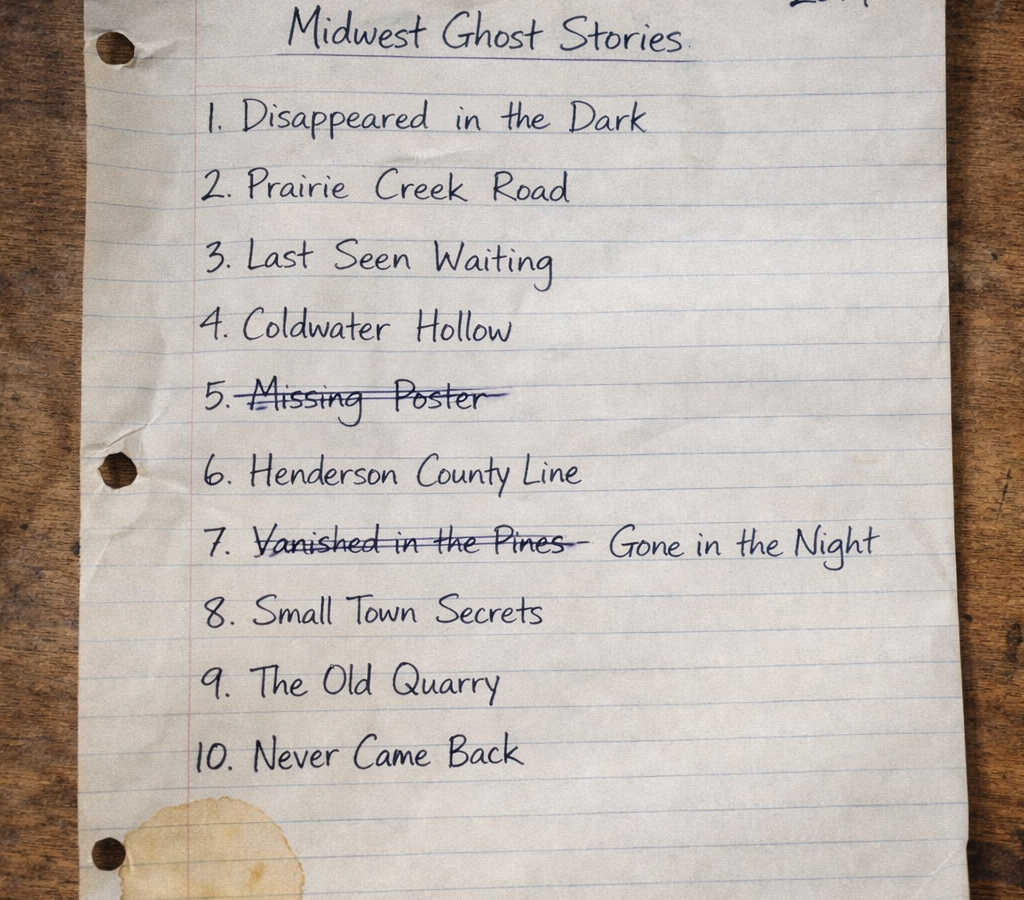 Midwest Ghost Stories
1. Disappeared in the Dark
2. Prairie Creek Road
3. Last Seen Waiting
4. Coldwater Hollow
5. Missing Poster
6. Henderson County Line
7. Vanished in the Pines - Gone in the Night
8. Small Town Secrets
9. The Old Quarry
10. Never Came Back